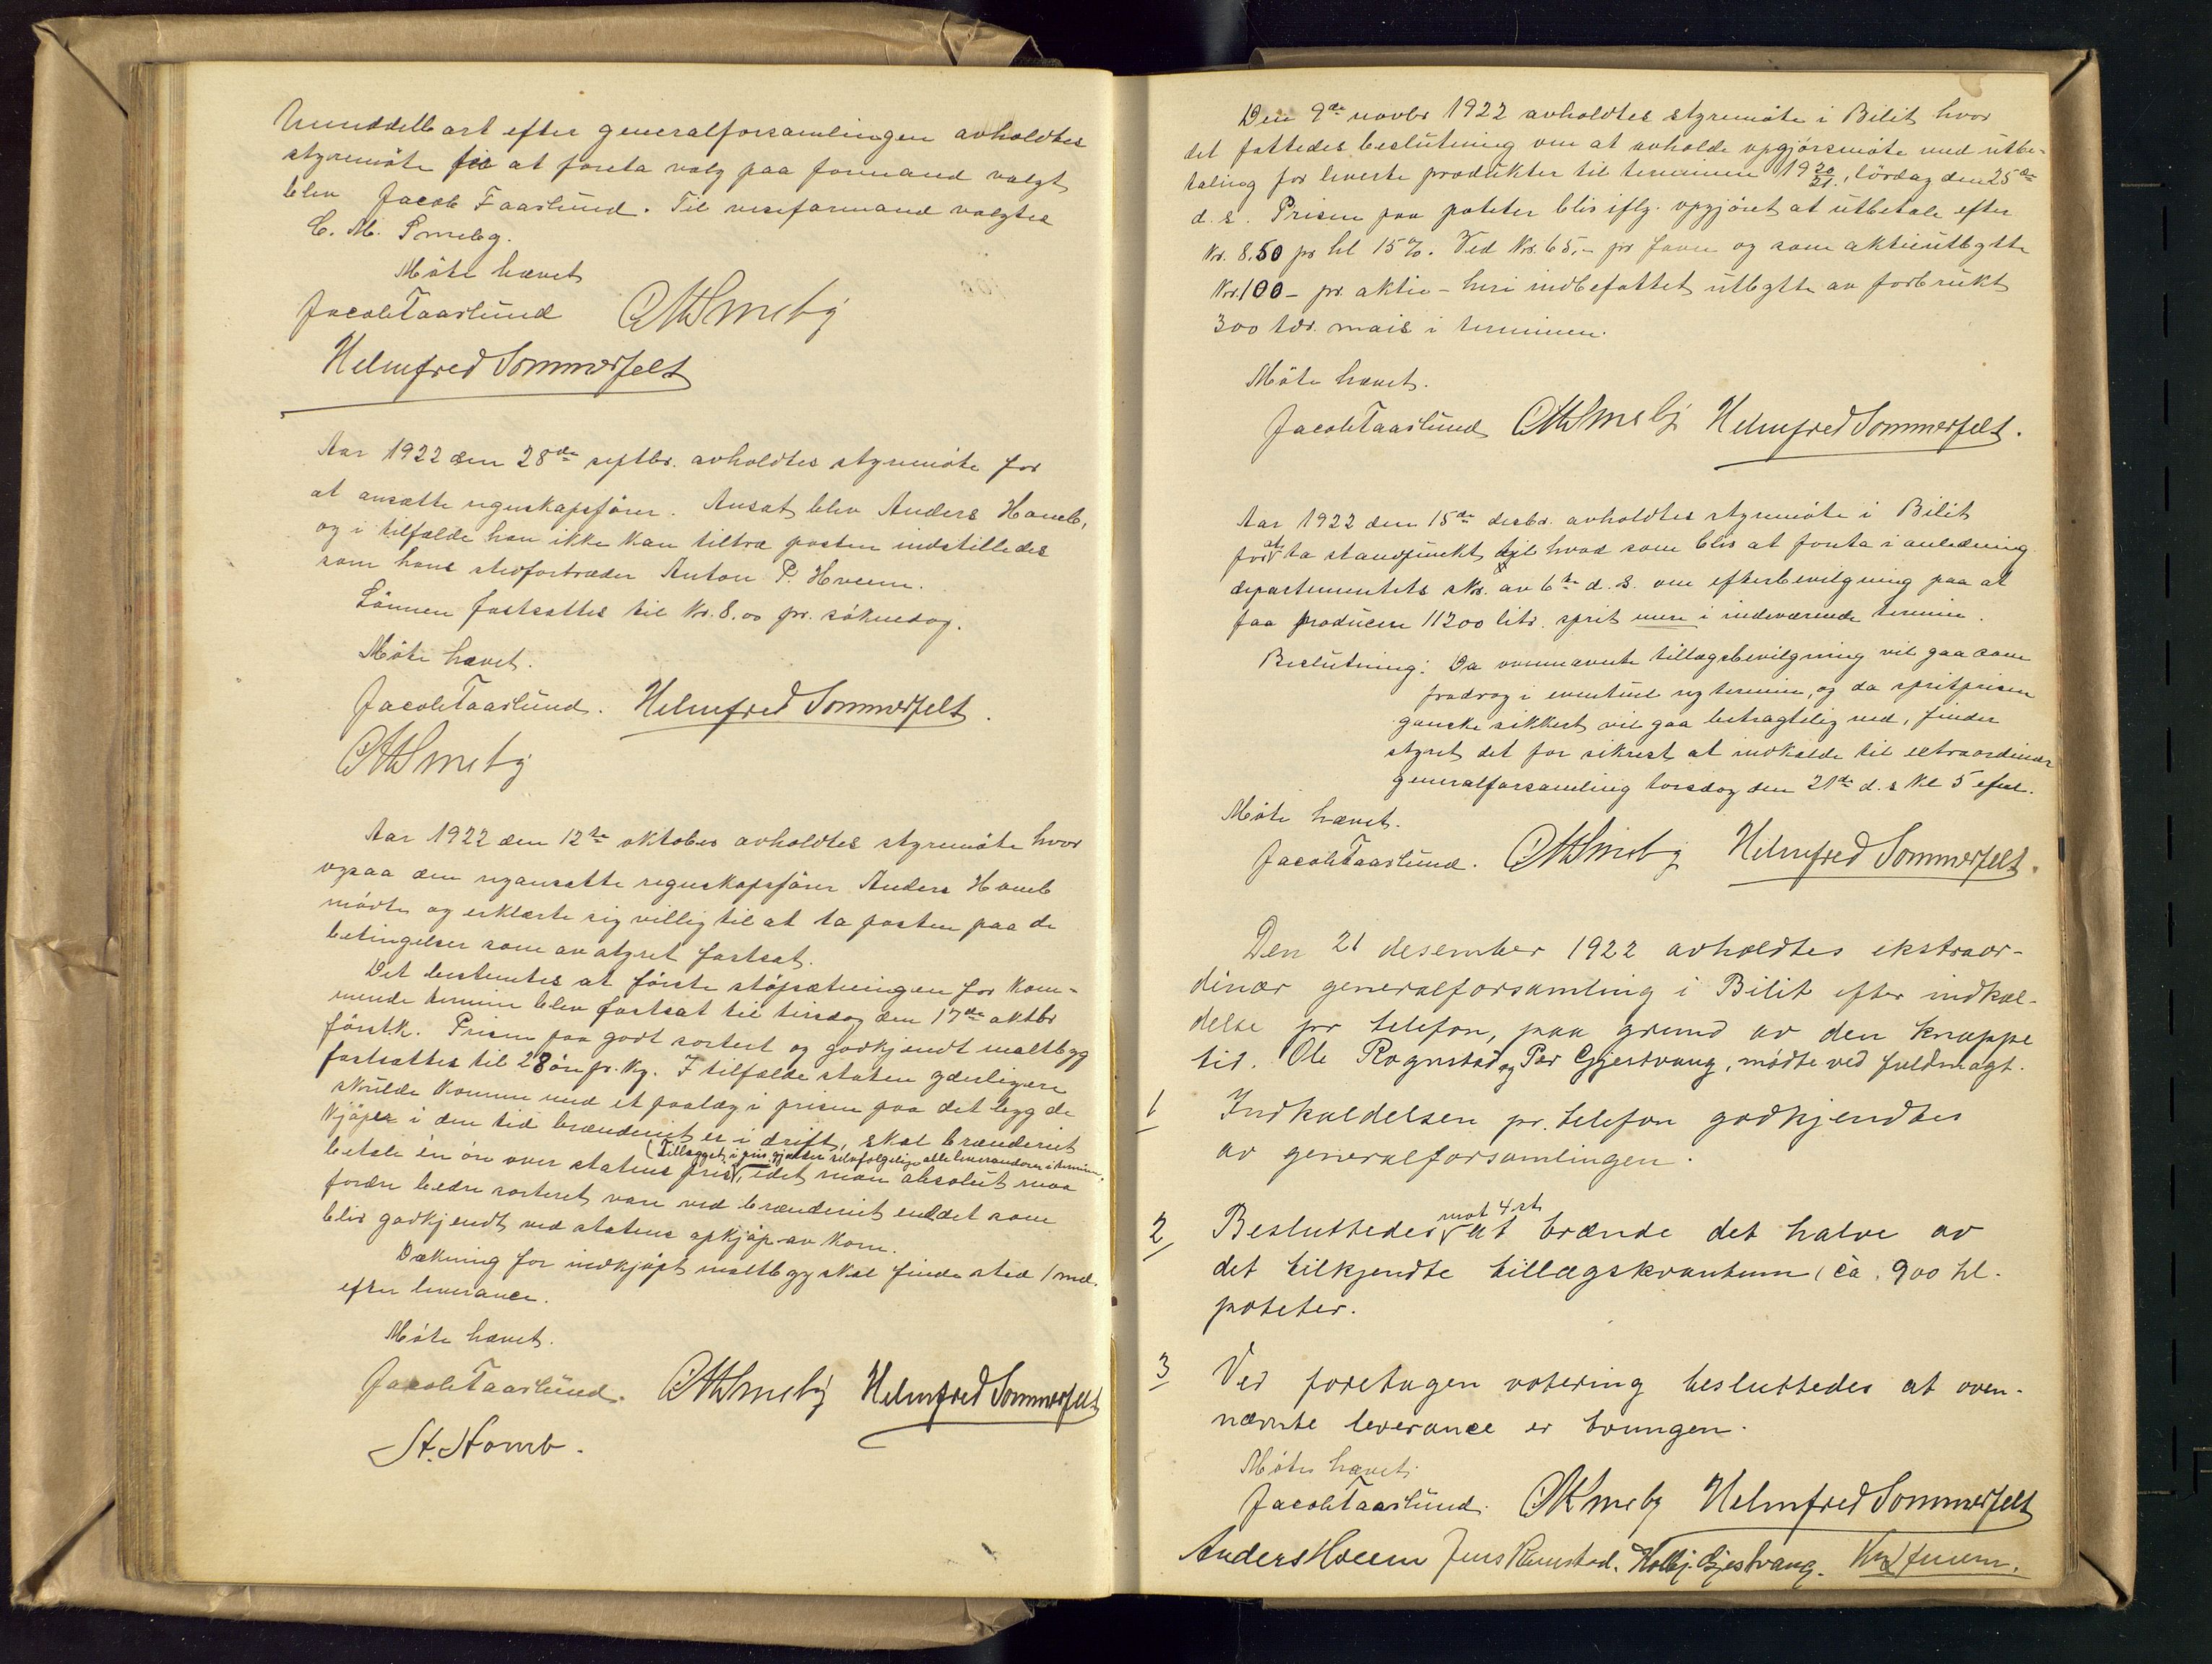 Umiddelbart efter generalforsamlingen avholdtes
styremöte for at foreta valg paa formand valgt
blev Jacob Faaslund. Til viseformand valgtes
C. M. Smeby.
Möte hævet
Jacob Taaslund CMSmeby
Helmfred Sommerfelt
Aar 1922 den 28de septbr. avholdtes styremöte for
at ansætte regnskapsförer. Ansat blev Anders Homb,
og i tilfælde han ikke kan tiltræ posten indstilledes
som hans stedfortræder Anton P. Hveem.
Lönnen fastsattes til Kr. 8.00 pr. söknedag.
Möte hævet.
Jacob Taaslund. Helmfred Sommerfelt.
CMSmeby
Aar 1922 den 12te oktober avholdtes styremöte hvor
ogsaa den nyansatte regnskapsförer Anders Homb
mödte og erklærte sig villig til at ta posten paa de
betingelser som av styret fastsat.
Det bestemtes at förste stöpsætningen for kom-
mende termin blev fastsat til tirsdag den 17de oktbr
förstk. Prisen paa godt sortert og godkjendt maltbygg
fastsattes til 28 öre pr. kg. I tilfælde staten yderligere
skulde komme med et paalæg i prisen paa det bygg de
kjöper i den tid brænderiet er i drift, skal brænderiet
(Tillægget i pris gjælder selvfølgelig alle leverandører i terminen.
betale én öre over statens pris, idet man absolut maa
fordre bedre sorteret vare ved brænderiet end det som
blir godkjendt ved statens opkjöp av korn.
Dækning for indkjöpt maltbygg skal finde sted 1 md.
efter leverance.
Möte hævet.
Jacob Taaslund. CMSmeby Helmfred Sommerfelt
A. Homb.
Den 9de novbr 1922 avholdtes styremöte i Bilit hvor
det fattedes beslutning om at avholde opgjörsmöte med utbe-
taling for leverte produkter til terminen 19 20/21, lördag den 25de
d. s. Prisen paa poteter blir iflg. opgjöret at utbetale efter
Kr. 8.50 pr hl 15%. Ved Kr. 65,- pr favn og som aktieutbytte
Kr. 100 - pr. aktie - heri indbefattet utbytte av forbrukt
300 tdr. mais i terminen.
Möte hævet.
Jacob Taaslund CMSmeby Helmfred Sommerfelt.
Aar 1922 den 15de desbr. avholdtes styremöte i Bilit
for at ta standpunkt til hvad som blir at foreta i anledning
departementets skr. av 6te d. s. om efterbevilgning paa at
faa producere 11200 litr. sprit mere i indeværende termin.
Beslutning: Da ovennævnte tillægsbevilgning vil gaa som
fradrag i eventuel ny termin, og da spritprisen
ganske sikkert vil gaa betragtelig ned, finder
styret det for sikrest at indkalde til extraordinær
generalforsamling torsdag den 21de d. s kl 5 efm.
Möte hævet.
Jacob Taaslund. CMSmeby Helmfred Sommerfelt.
Den 21 desember 1922 avholdtes ekstraor-
dinær generalforsamling i Bilit efter indkal-
delse pr telefon, paa grund av den knappe
tid. Ole Rognstad og Per Gjestvang, mødte ved fuldmagt.
1 Indkaldelsen pr. telefon godkjendtes
av generalforsamlingen.
mot 4 st.
2 Besluttedes at brænde det halve av
det tilkjendte tillægskvantum, ca. 900 hl.
poteter.
3 Ved foretagen votering besluttedes at oven-
nævnte leverance er tvungen.
Möte hævet.
Jacob Taaslund. CMSmeby Helmfred Sommerfelt
Anders Hveem Jens Ramstad. Halvj. Gjestvang.